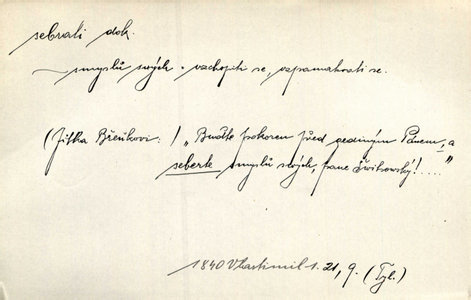 sebrati dok.
~ smyslů svých = vzchopiti se, vzpamatovati se.
(Jitka Břeňkovi:) „Buďte pokoren před jediným Pánem, a
seberte smyslů svých, pane Švihovský!...."
1840 Vlastimil 1. 21, 9. (Tyl.)